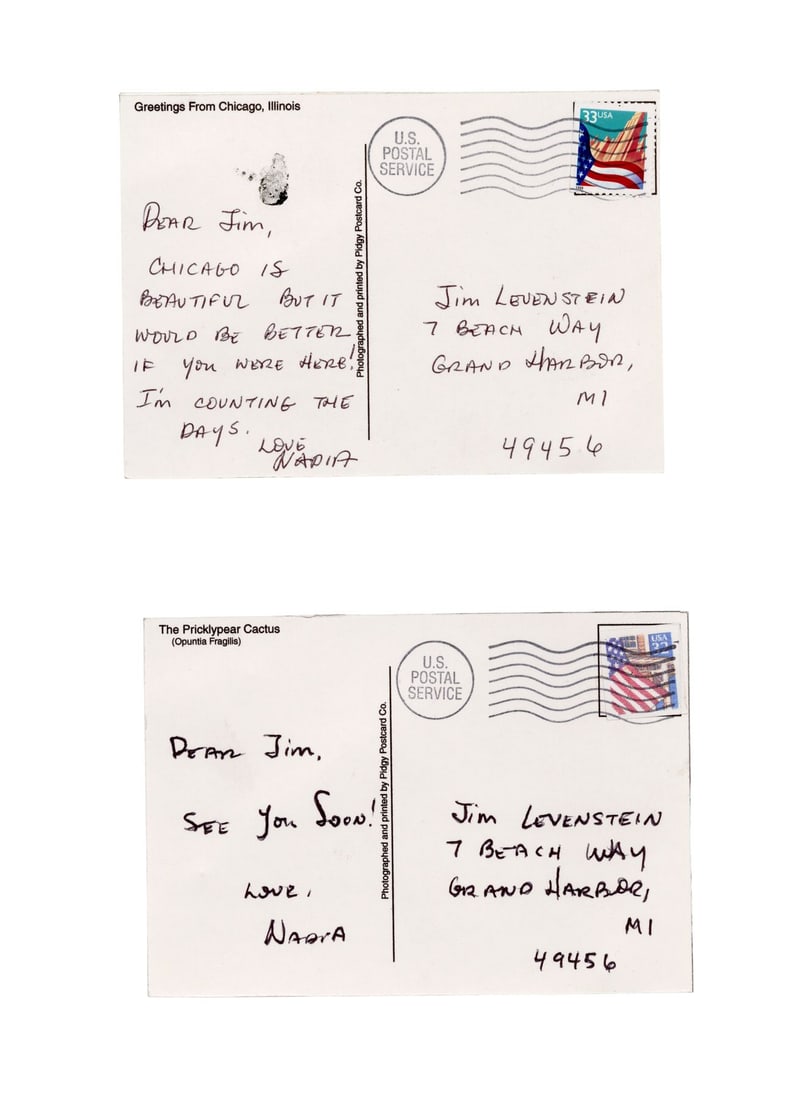 Greetings From Chicago, Illinois
U.S.
POSTAL
SERVICE
33USA
DEAR Jim,
CHICAGO IS
BEAUTIFUL BUT IT
WOULD BE BETTER
IF YOU WERE HERE!
I'm COUNTING THE
DAYS.
LOVE
NADIA
Photographed and printed by Pidgy Postcard Co.
Jim LEVENSTEIN
7 BEACH WAY
GRAND HARBOR,
MI
49456
The Pricklypear Cactus
(Opuntia Fragilis)
U.S.
POSTAL
SERVICE
USA
32
DEAR Jim,
SEE YOU SOON!
LOVE,
NADIA
Photographed and printed by Pidgy Postcard Co.
Jim LEVENSTEIN
7 BEACH WAY
GRAND HARBOR,
MI
49456